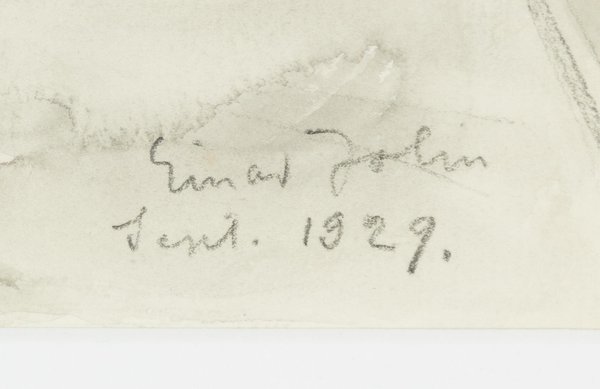 Einar Jolin
Sept. 1929.